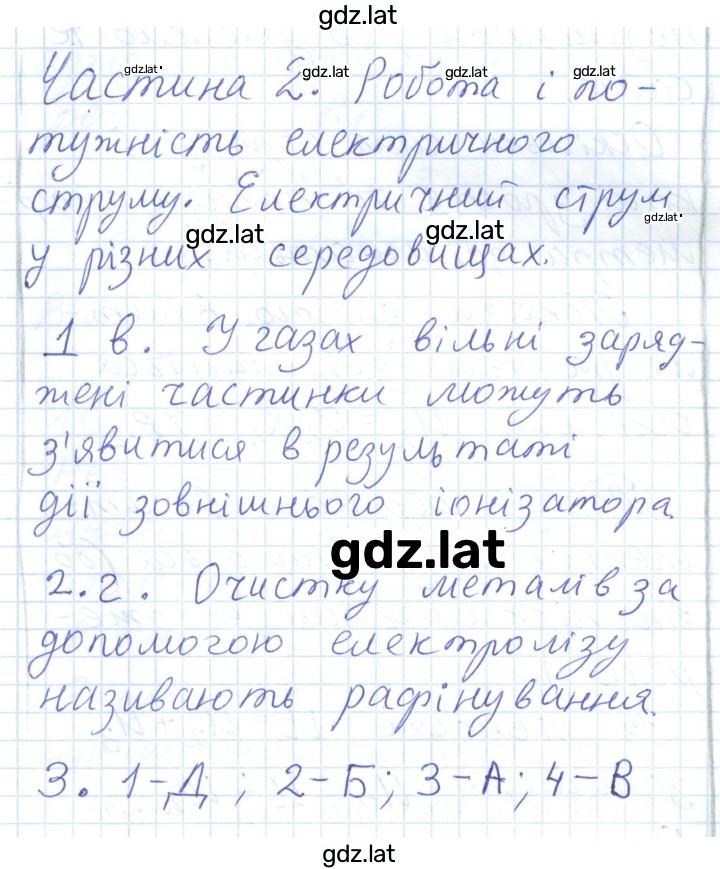 gdz.lat
Частина 2. Робота і по-
gdz.lat gdz.lat gdz.lat gdz.lat
тужність електричного
струму. Електричний струм
gdz.lat gdz.lat gdz.lat
у різних середовищах.
1 в. У газах вільні заряд-
жені частинки можуть
з'явитися в результаті
дії зовнішнього іонізатора.
gdz.lat
2.г. Очистку металів за
допомогою електролізу
називають рафінування.
3. 1-Д; 2-Б; 3-А; 4-В
gdz.lat